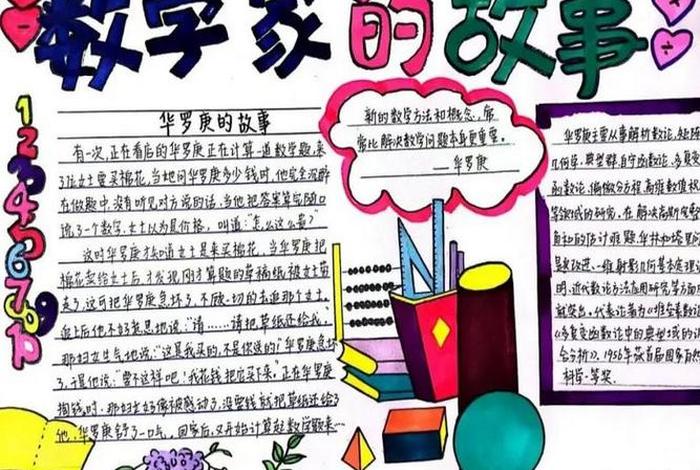 数学家的故事
1
2
3
4
5
6
7
8
9
华罗庚的故事
有一次,正在看店的华罗庚正在计算一道数学题,来
了位女士要买棉花,当她问华罗庚多少钱时,他完全沉醉
在做题中,没有听见对方说的话,当他把答案算完随口
说了一个数字,女士以为是价格,叫道:“怎么这么贵?”
这时华罗庚才知道女士是来买棉花,当华罗庚把
棉花卖给女士后,才发现刚才算题的草稿纸被女士带
走了,这可把华罗庚急坏了,不顾一切的去追那个女士,
追上后他不好意思地说:“请……请把草纸还给我,”
那妇女生气地说:“这是我买的,不是你送的!”华罗庚急坏
了,于是他说:“要不这样吧!我花钱把它买下来。”正在华罗庚
掏钱时,那妇女好像被感动了,没要钱就把草纸还给了
他,华罗庚舒了一口气,回家后,又开始计算起数学题来…
新的数学方法和概念,常
常比解决数学问题本身更重要。
——华罗庚
华罗庚主要从事解析数论,矩阵
几何学,典型群,自守函数论,多复变
函数论,偏微分方程,高维数值积
等领域的研究,在解决高斯完整
三角和的估计难题,华林和塔里
明,近代数论方法应用研究等方面
就突出,代表论著为《堆垒素数论》
《多复变函数论中的典型域的调
和分析》。1956年获首届国家自然
科学一等奖.